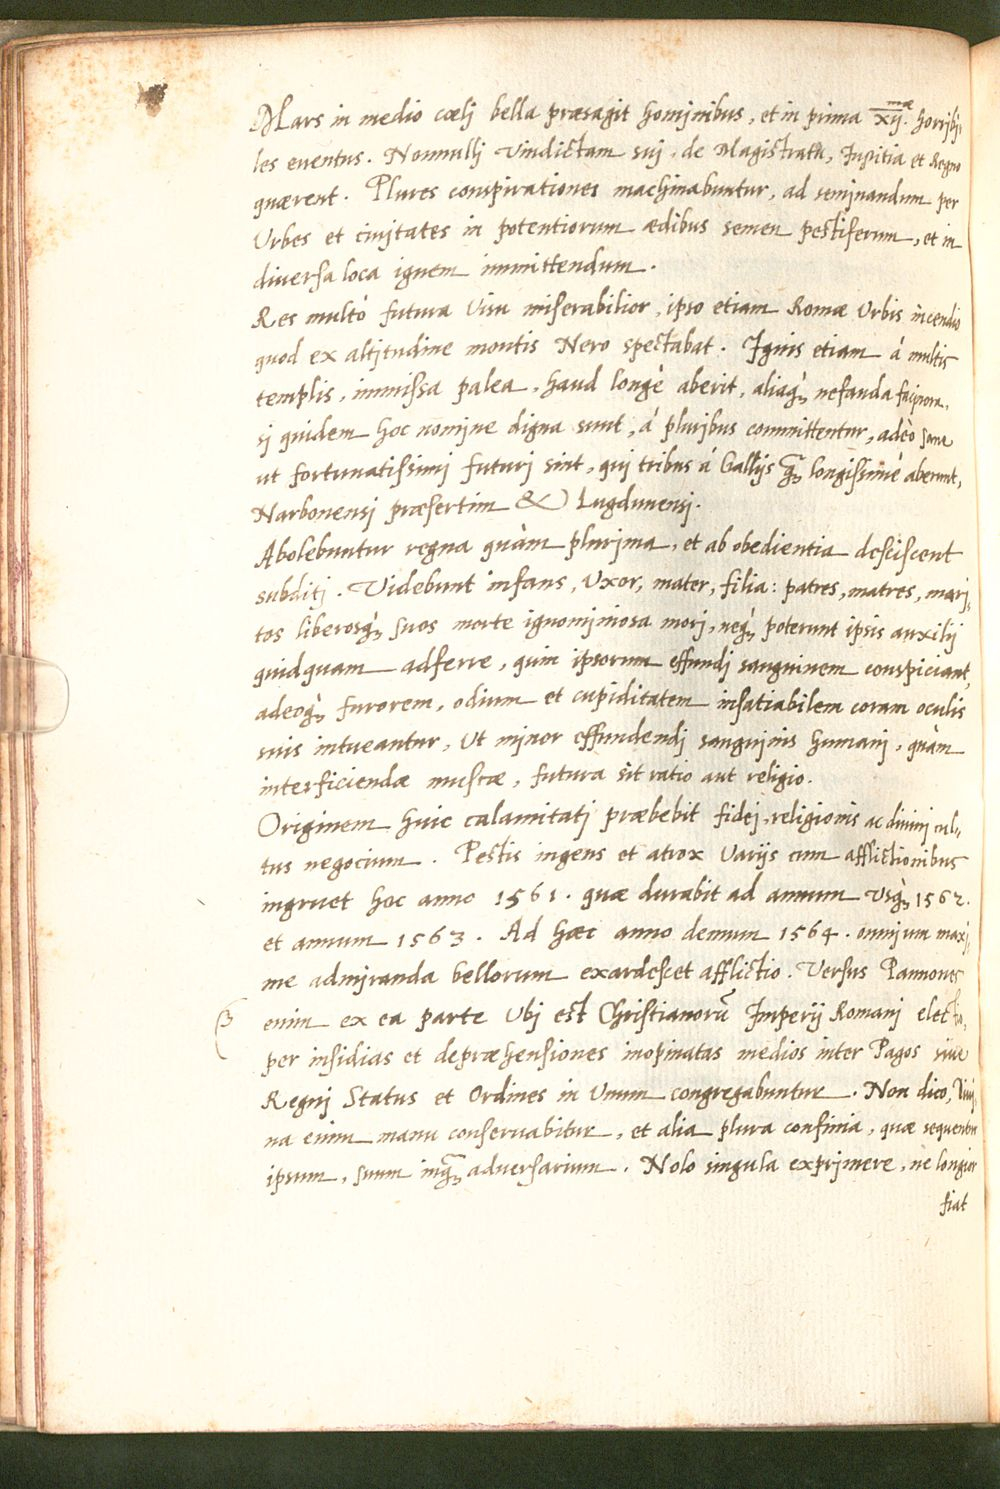 Mars in medio cœlj bella præsagit hominibus, et in prima xij.mæ horribi,
les euentus. Nonnullj vindictam suj, de Magistratu, Iustitia et Regno
quærent. Plures conspirationes machinabuntur, ad seminandum per
Vrbes et ciuitates in potentiorum ædibus semen pestiferum, et in
diuersa loca ignem immittendum.
Res multò futura visu miserabilior, ipso etiam Romæ Vrbis incendio
quod ex altitudine montis Nero spectabat. Ignis etiam à multis
templis, immissa palea, haud longè aberit, aliaq̀ȝ nefanda facinora,
sj quidem hoc nomine digna sunt, à pluribus committentur, adeò sane
ut fortunatissimj futurj sint, quj tribus à Gallijs q̃ȝ longissimè aberunt,
Narbonensj præsertim & Lugdunensj.
Abolebuntur regna quàm plurima, et ab obedientia desciscent
subditj. Videbunt infans, vxor, mater, filia: patres, matres, mari,
tos liberosq̀ȝ suos morte ignominiosa morj, neq̀ȝ poterunt ipsis auxilij
quidquam adferre, quin ipsorum effundj sanguinem conspiciant,
adeoq̀ȝ furorem, odium et cupiditatem insatiabilem coram oculis
suis intueantur, vt minor effundendj sanguinis humanj, quàm
interficiendæ muscæ, futura sit ratio aut religio.
Originem huic calamitatj præbebit fidej, religionis ac diuinj cul,,
tus negocium. Pestis ingens et atrox varijs cum afflictionibus
ingruet hoc anno 1561. quæ durabit ad annum vsq̀ȝ 1562.
et annum 1563. Ad hæc anno demum 1564. omnium maxi,
me admiranda bellorum exardescet afflictio. Versus Pannones,
enim ex ea parte vbj est Christianorũ Imperij Romanj electio,
per insidias et depræhensiones inopinatas medios inter Pagos siue
Regnj Status et Ordines in vnum congregabuntur. Non dico, Diui,
na enim manu conseruabitur, et alia plura confinia, quæ sequentur
ipsum, suum inq̃ȝ aduersarium. Nolo singula exprimere, ne longior
fiat